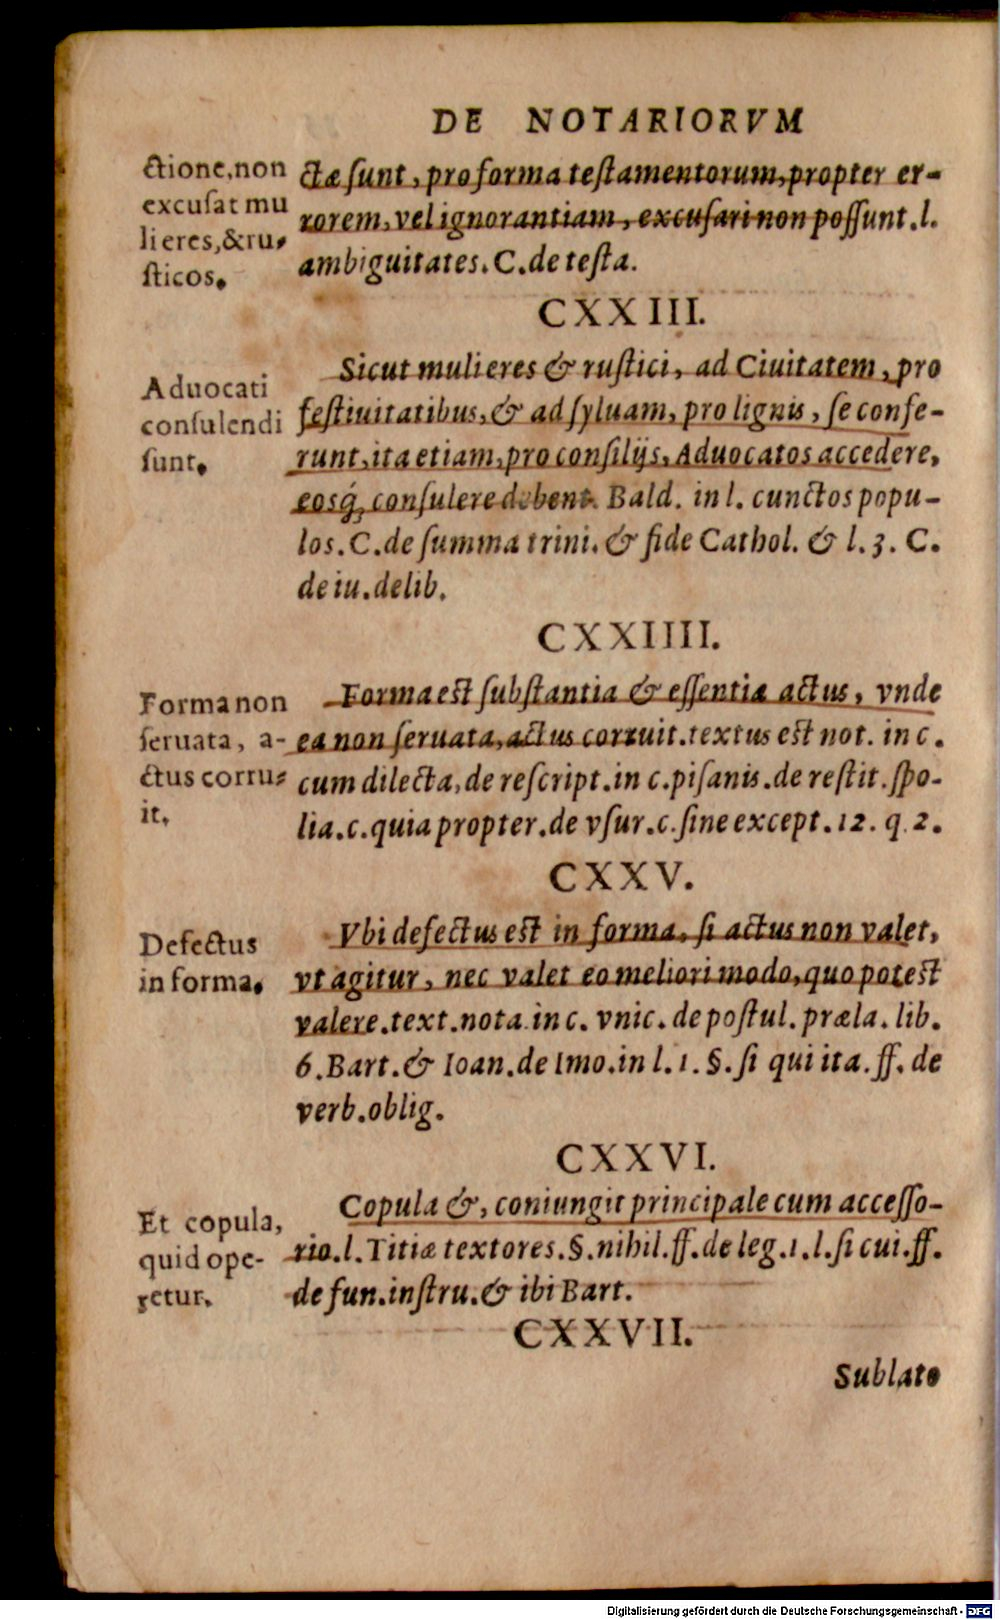 DE NOTARIORVM
ctione, non
excusat mu
lieres, & ru-
sticos.
ctæ sunt, pro forma testamentorum, propter er-
rorem, vel ignorantiam, excusari non possunt. l.
ambiguitates. C. de testa.
CXXIII.
Aduocati
consulendi
sunt.
Sicut mulieres & rustici, ad Ciuitatem, pro
festiuitatibus, & ad syluam, pro lignis, se confe-
runt, ita etiam, pro consilijs, Aduocatos accedere,
eosq́; consulere debent. Bald. in l. cunctos popu-
los. C. de summa trini. & fide Cathol. & l. 3. C.
de iu. delib.
CXXIIII.
Forma non
seruata, a-
ctus corru-
it.
Forma est substantia & essentia actus, vnde
ea non seruata, actus corruit. textus est not. in c.
cum dilecta, de rescript. in c. pisanis. de restit. spo-
lia. c. quia propter. de vsur. c. sine except. 12. q. 2.
CXXV.
Defectus
in forma.
Vbi defectus est in forma, si actus non valet,
vt agitur, nec valet eo meliori modo, quo potest
valere. text. nota. in c. vnic. de postul. præla. lib.
6. Bart. & Ioan. de Imo. in l. 1. §. si qui ita. ff. de
verb. oblig.
CXXVI.
Et copula,
quid ope-
retur.
Copula &, coniungit principale cum accesso-
rio. l. Titiæ textores. §. nihil. ff. de leg. 1. l. si cui. ff.
de fun. instru. & ibi Bart.
CXXVII.
Sublato
Digitalisierung gefördert durch die Deutsche Forschungsgemeinschaft - DFG